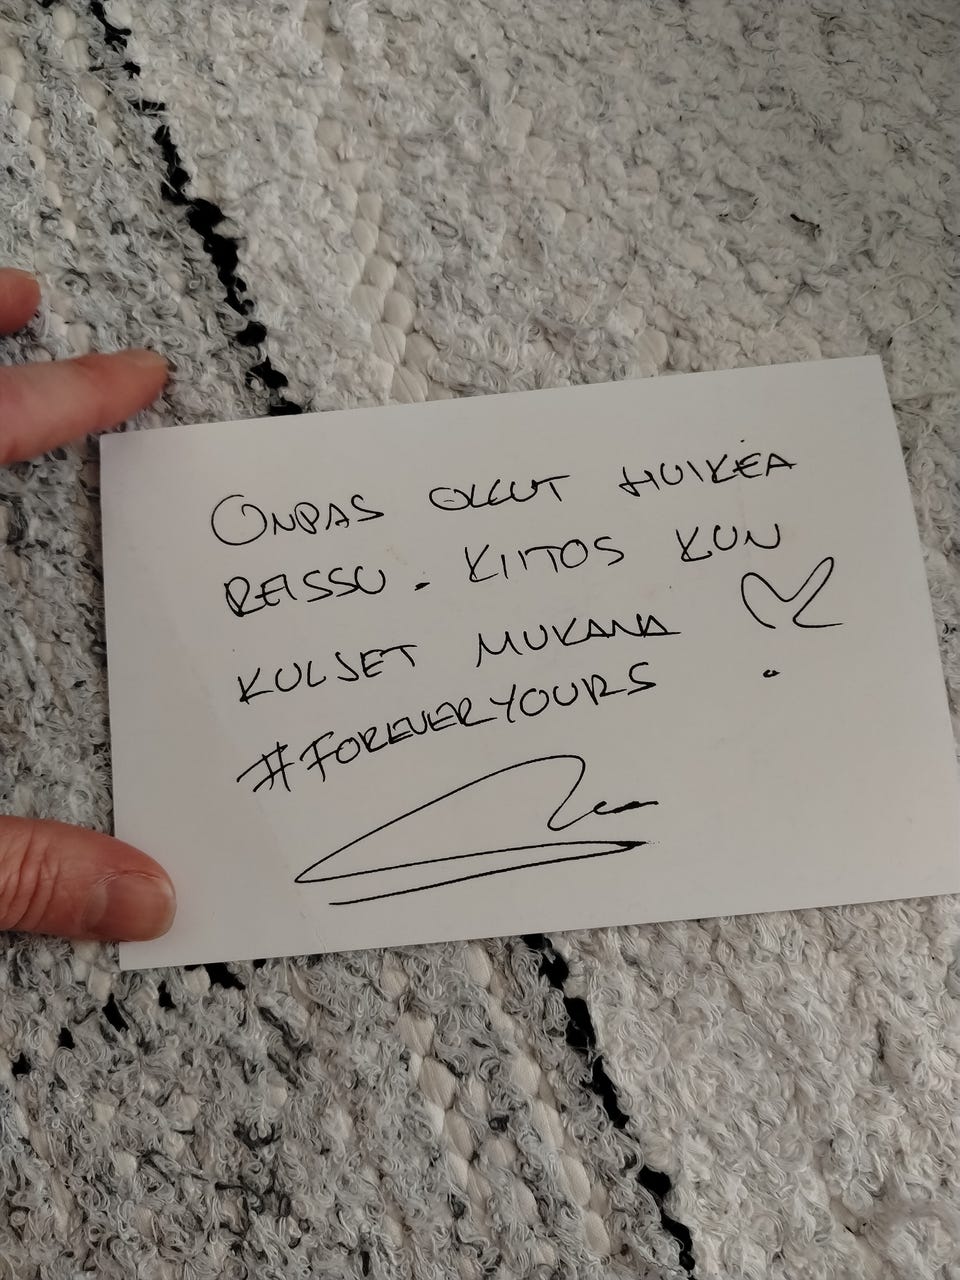 ONPAS OLLUT HUIKEA
REISSU. KIITOS KUN
KULJET MUKANA
#FOREVERYOURS